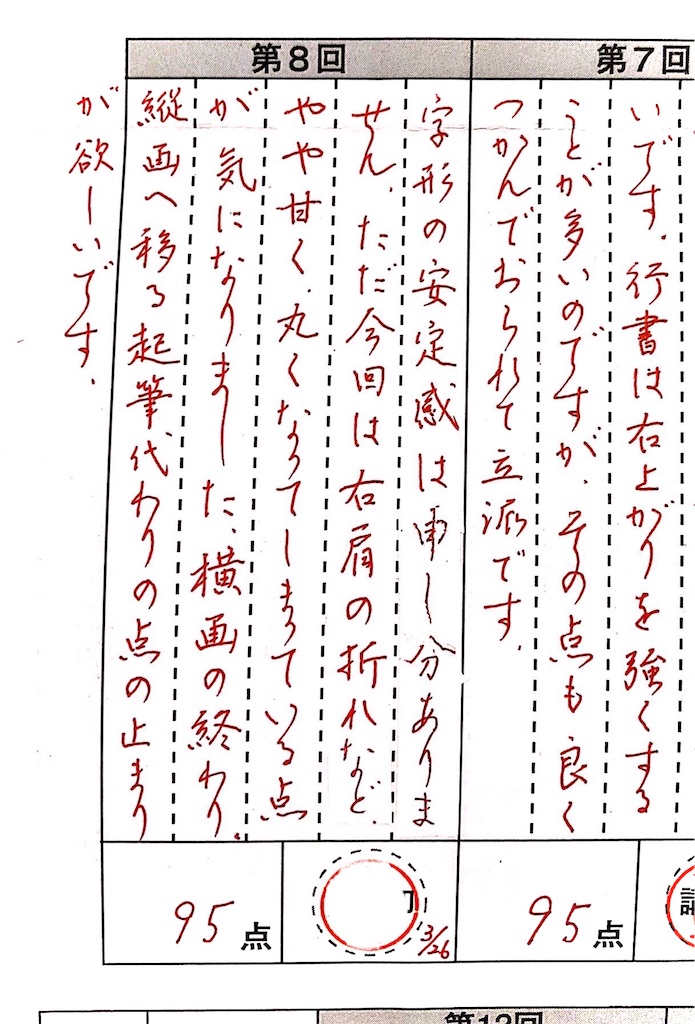 第7回
いです。行書は右上がりを強くする
ことが多いのですが、その点も良く
つかんでおられて立派です。
95点
第8回
字形の安定感は申し分ありま
せん。ただ今回は右肩の折れなど、
やや甘く、丸くなってしまっている点
が気になりました。横画の終わり、
縦画へ移る起筆代わりの点の止まり
が欲しいです。
3/26
95点
第12回